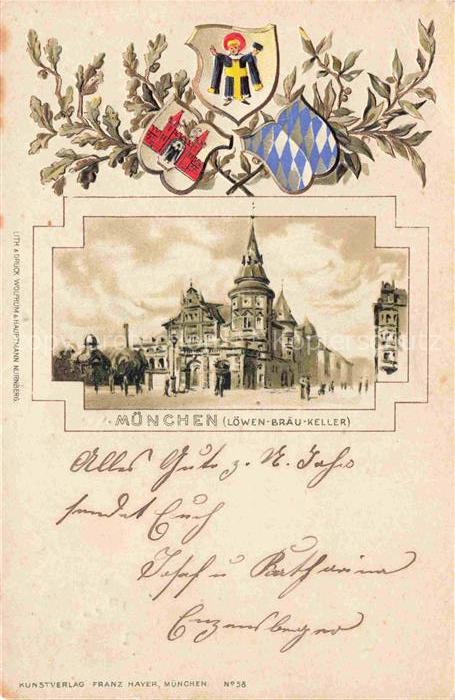 LITH & DRUCK WOLFRUM & HAUPTMANN NÜRNBERG
MÜNCHEN (LÖWEN-BRÄU-KELLER)
Alles Gute z. N. Jahr
sendet Euch
Josef u Katharina
Enzensberger
KUNSTVERLAG FRANZ HAYER, MÜNCHEN. No 58